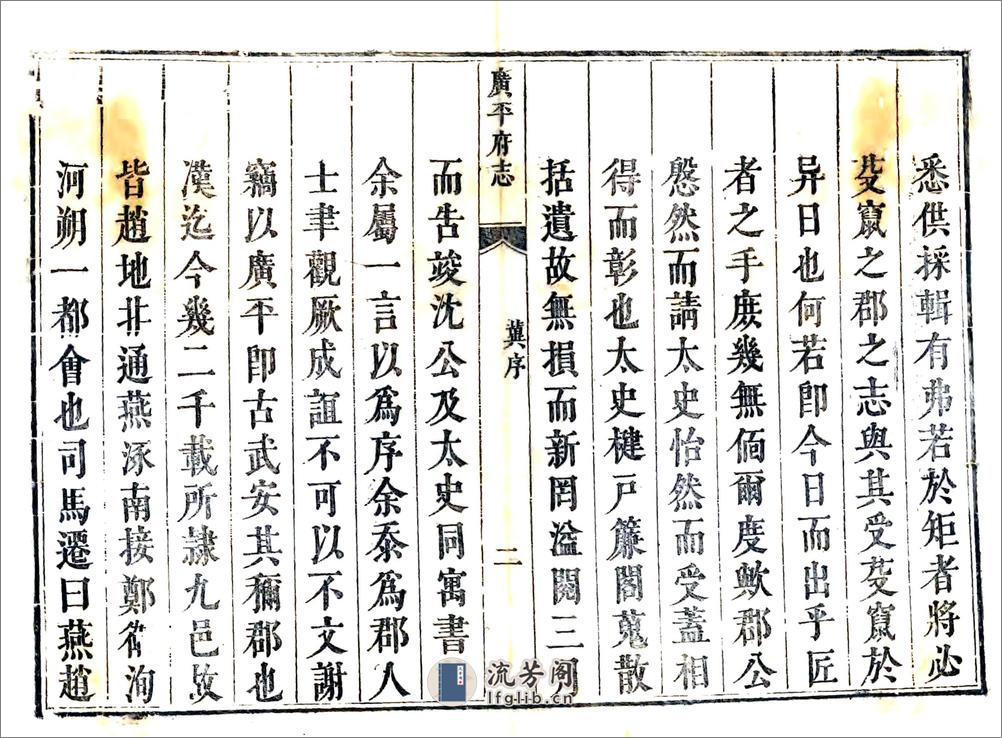 悉供採輯有弗若於矩者將必
芟竄之郡之志與其受芟竄於
异日也何若卽今日而出乎匠
者之手庶幾無偭爾度歟郡公
慇然而請太史怡然而受蓋相
得而彰也太史楗戸簾閣蒐散
括遺故無損而新罔溢閱三
廣平府志
冀序
二
而告竣沈公及太史同寓書
余屬一言以爲序余忝爲郡人
士聿觀厥成誼不可以不文謝
竊以廣平卽古武安其彌郡也
漢迄今幾二千載所隷九邑故
皆趙地北通燕涿南接鄭衛洵
河朔一都會也司馬遷曰燕趙
流芳阁
lfglib.cn